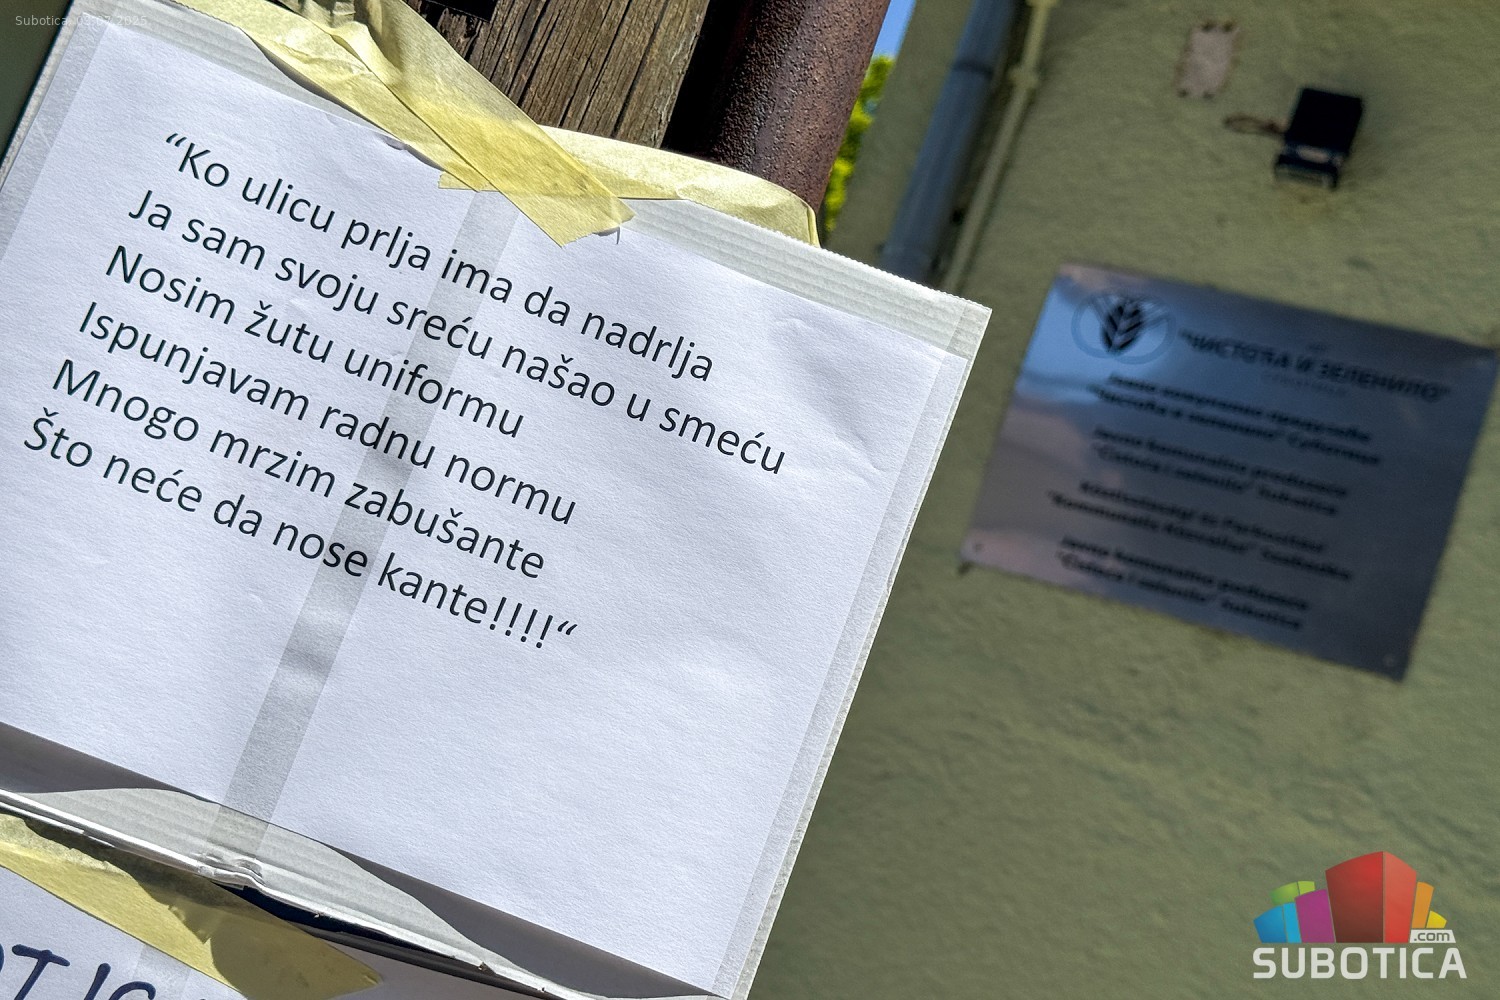 Subotica, 09.07.2025
“Ko ulicu prlja ima da nadrlja
Ja sam svoju sreću našao u smeću
Nosim žutu uniformu
Ispunjavam radnu normu
Mnogo mrzim zabušante
Što neće da nose kante!!!!“
"ЧИСТОЋА И ЗЕЛЕНИЛО"
.com
SUBOTICA